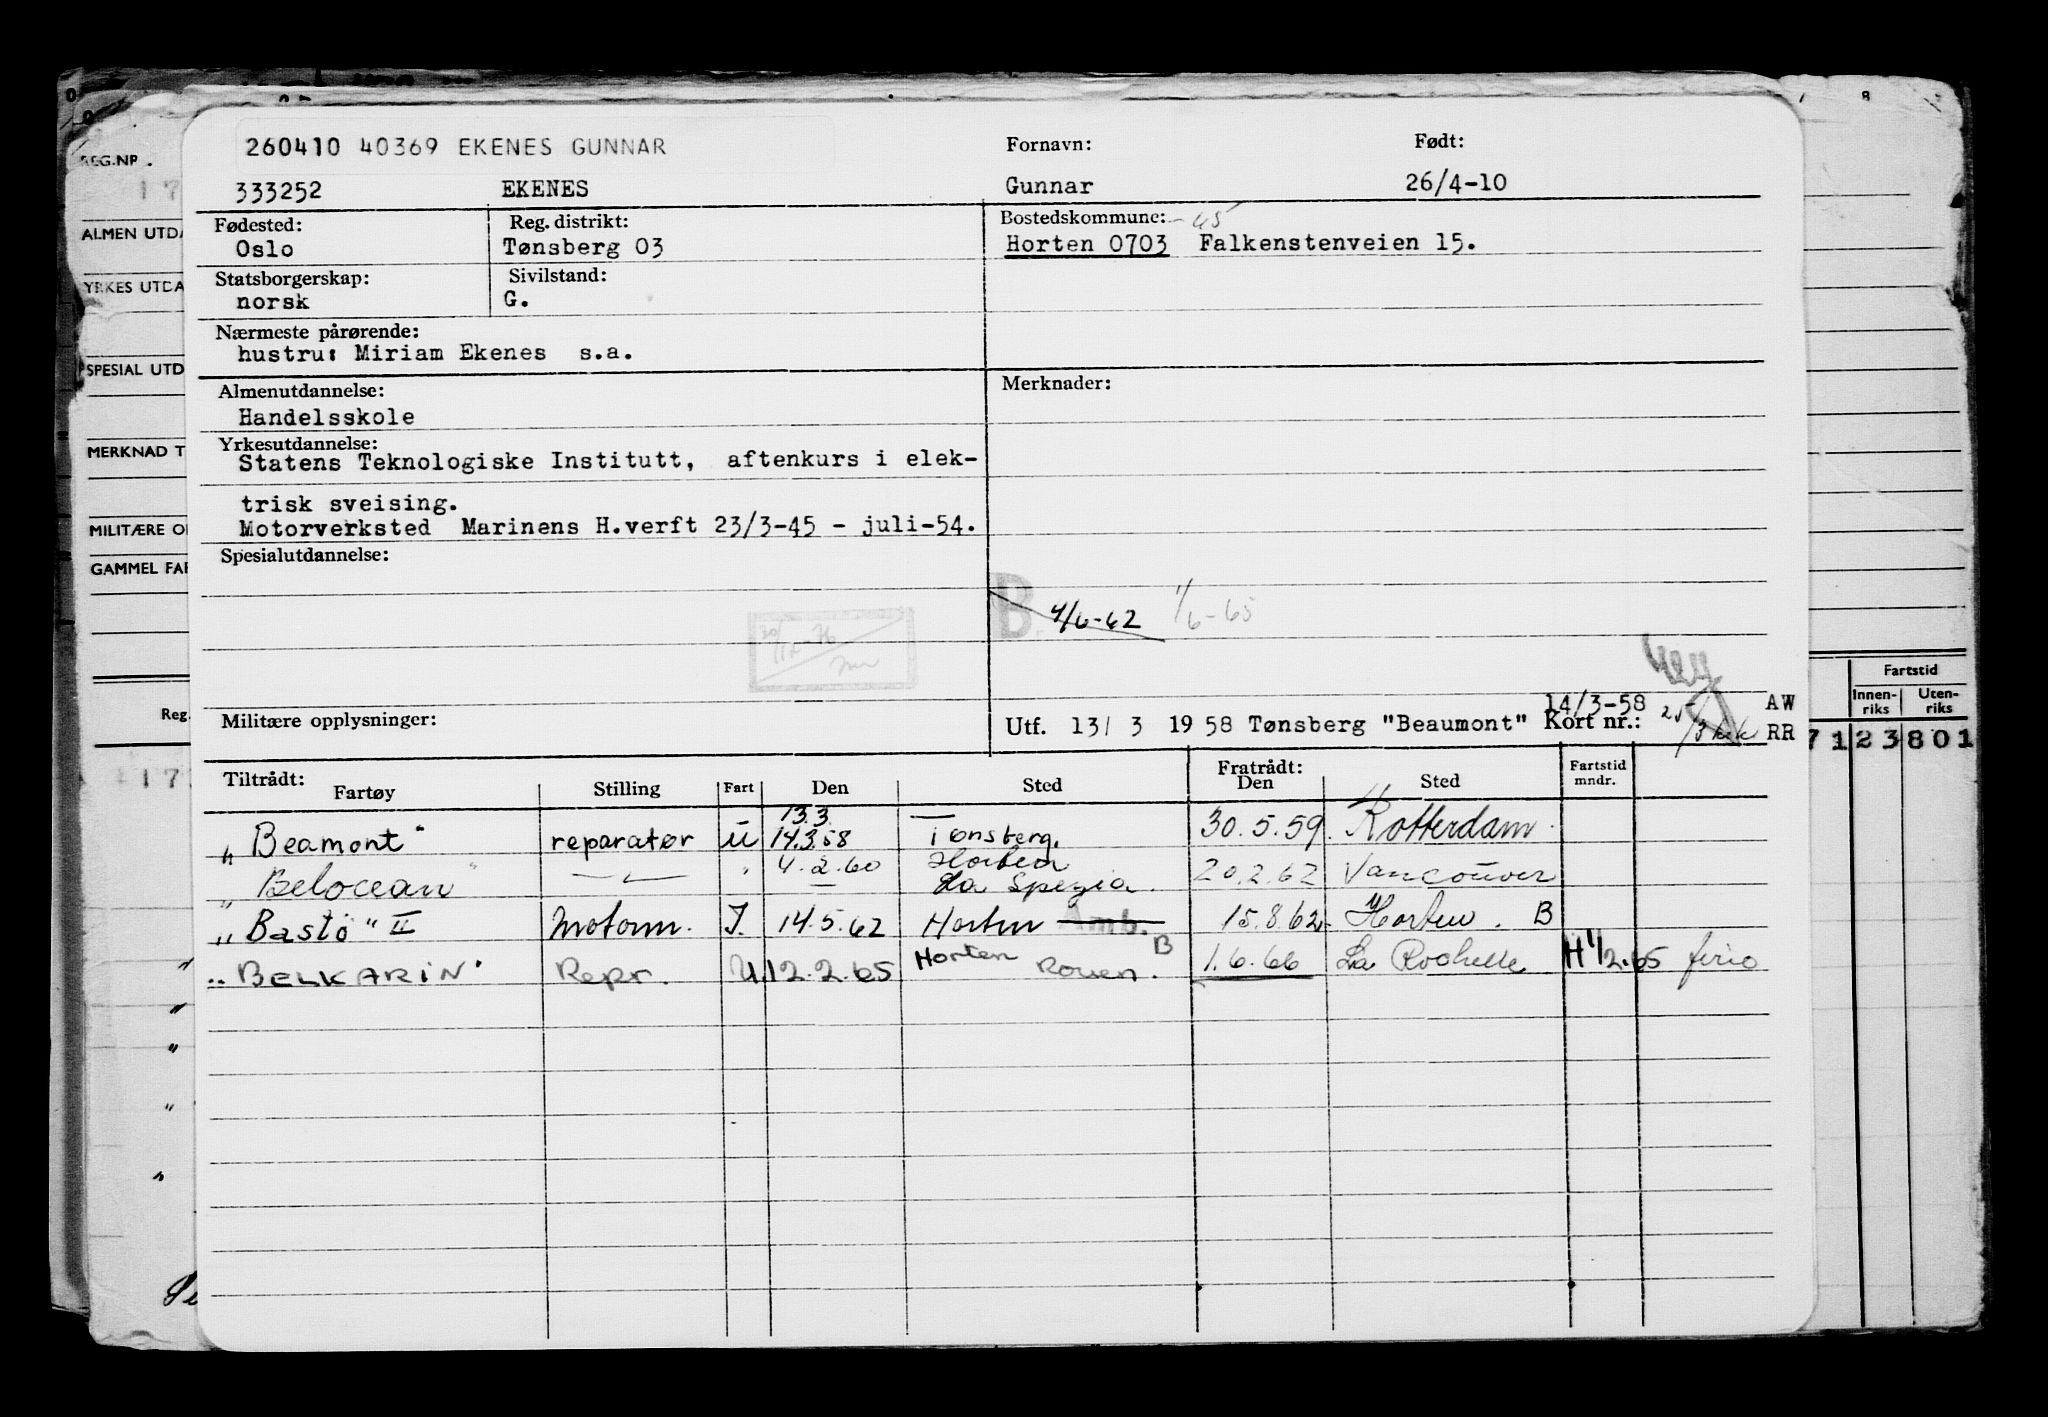 260410 40369 EKENES GUNNAR
Fornavn: Født:
333252 EKENES Gunnar 26/4-10
Fødested: Reg. distrikt: Bostedskommune: 45
Oslo Tønsberg 03 Horten 0703 Falkenstenveien 15.
Statsborgerskap: Sivilstand:
norsk G.
Nærmeste pårørende:
hustru: Miriam Ekenes s.a.
Almenutdannelse: Merknader:
Handelsskole
Yrkesutdannelse:
Statens Teknologiske Institutt, aftenkurs i elek-
trisk sveising.
Motorverksted Marinens H.verft 23/3-45 - juli-54.
Spesialutdannelse:
B 1/6-62 1/6-65
Militære opplysninger:
14/3-58 AW
Utf. 13/ 3 1958 Tønsberg "Beaumont" Kort nr.: RR
Tiltrådt: Fratrådt: Fartstid
Fartøy Stilling Fart Den Sted Den Sted mndr.
13.3
"Beamont" reparatør U 14.3.58 Tønsberg. 30.5.59. Rotterdam
Horten
"Belocean" " 4.2.60 La Spezia. 20.2.62 Vancouver
"Bastö" II Motorm. I. 14.5.62 Horten Amb. 15.8.62 Horten. B
"BELKARIN" Repr. U 12.2.65 Horten Rouen. B 1.6.66 La Rochelle H 1/2.65 ferie
REG.NR.
17
ALMEN UTDA
YRKES UTDA
SPESIAL UTD
MERKNAD T
MILITÆRE O
GAMMEL FAR
Reg.
17
8
Fartstid
Innen- Uten-
riks riks
71 23 801